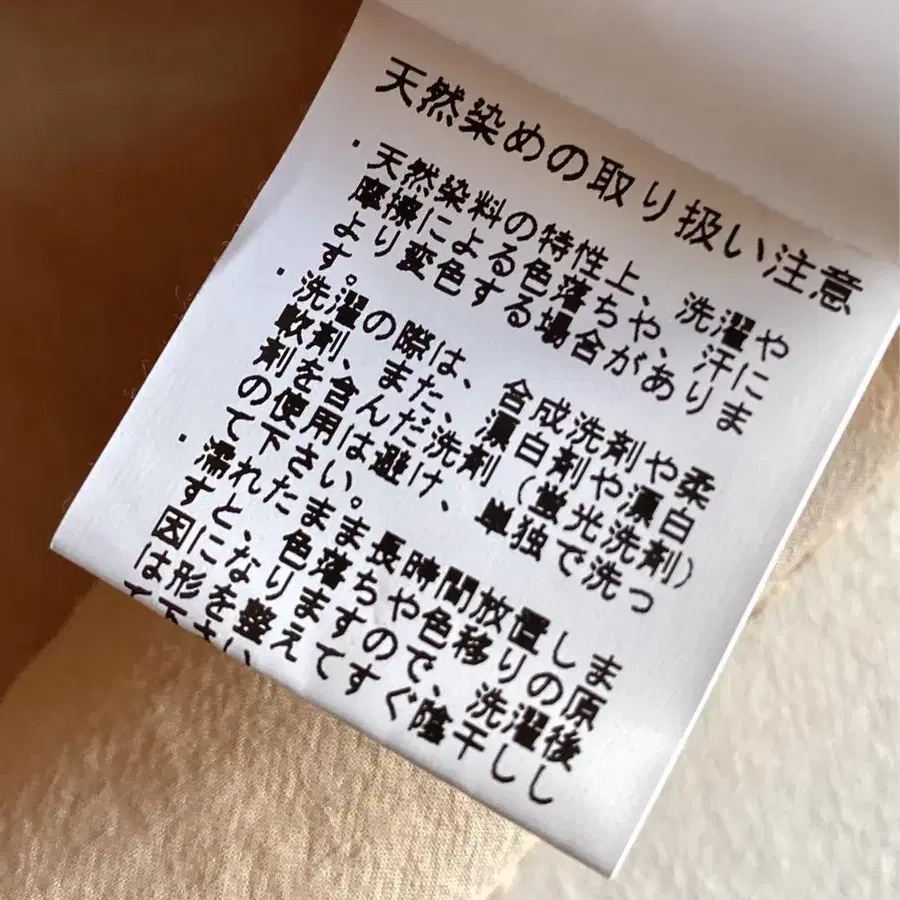 天然染めの取り扱い注意
・天然染料の特性上、洗濯や
摩擦による色落ちや、汗に
より変色する場合がありま
す。
・洗濯の際は、合成洗剤や柔
軟剤、また、漂白剤や漂白
剤を含んだ洗剤(蛍光洗剤)
の使用は避け、単独で洗っ
て下さい。
・濡れたまま長時間放置しま
すと、色落ちや色移りの原
因になりますので、洗濯後
は形を整えてすぐ陰干しし
て下さい